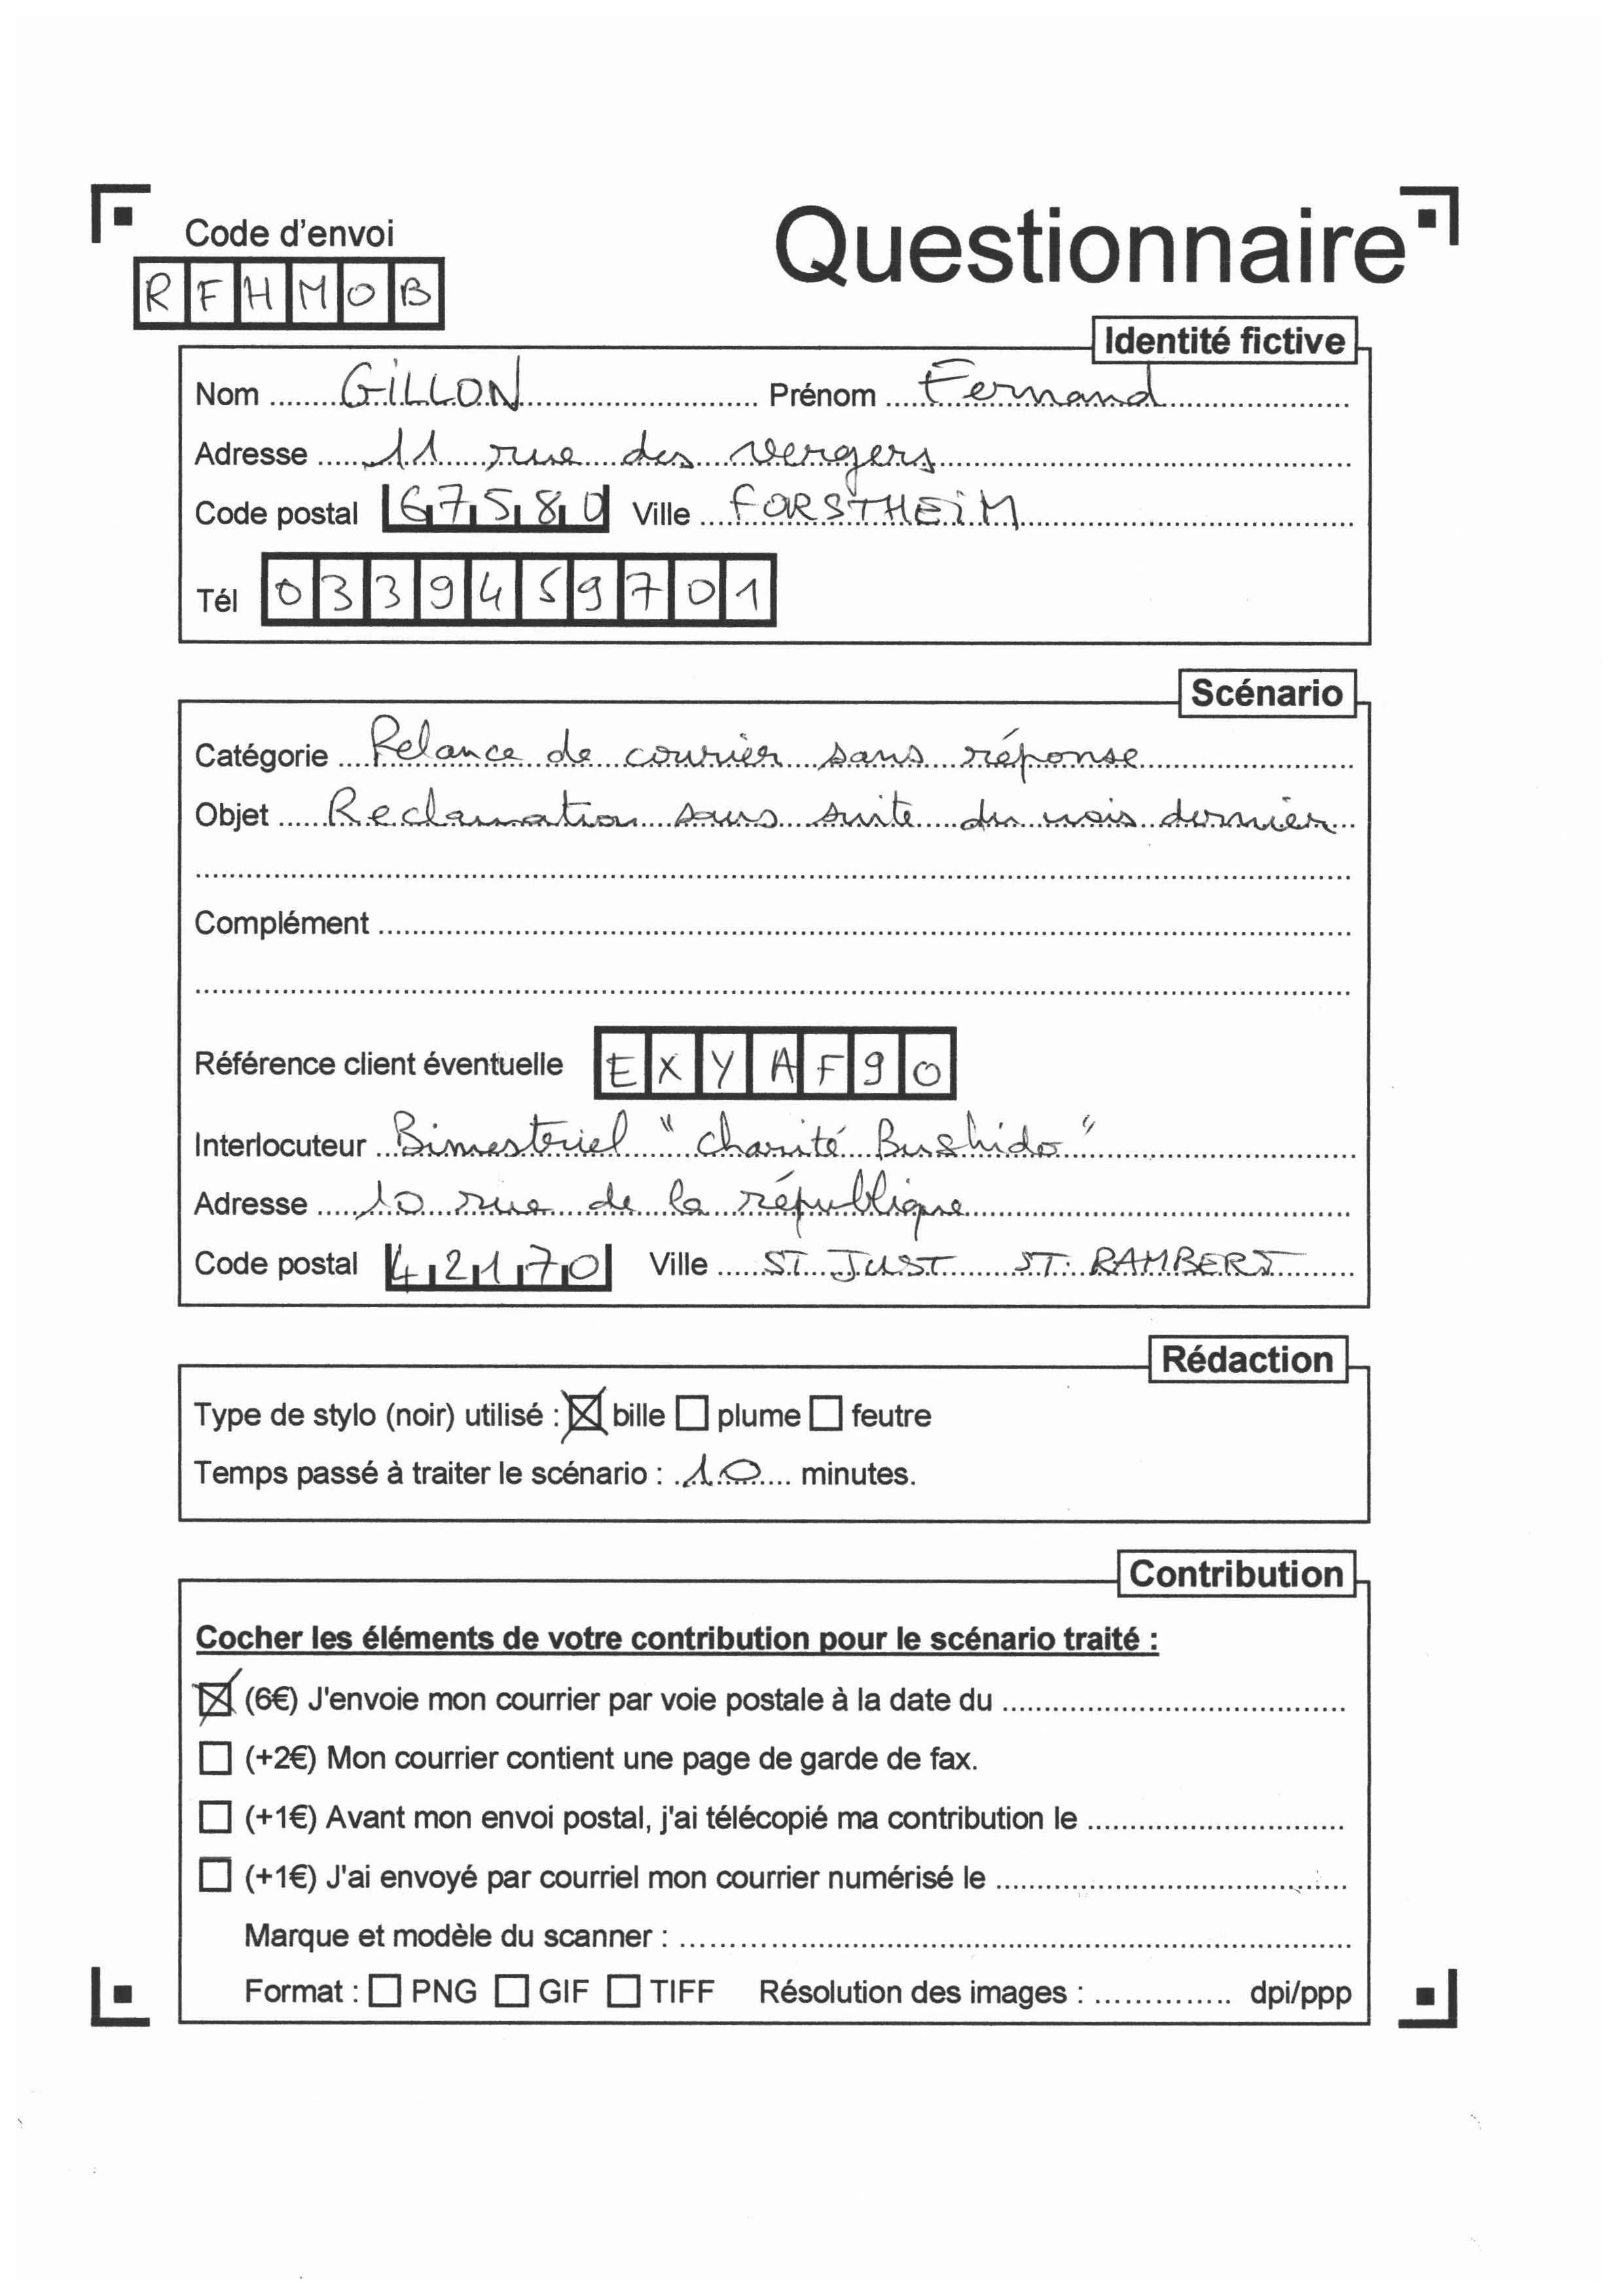 Code d'envoi
Questionnaire
RFHMOB
Identité fictive
Nom GILLON Prénom Fernand
Adresse 11 rue des vergers
Code postal 67580 Ville FORSTHEIM
Tél 0339459701
Scénario
Catégorie Relance de courier sans réponse
Objet Reclamation sans suite du mois dernier
Complément
Référence client éventuelle EXYAF90
Interlocuteur Bimestriel "Charité Bushido"
Adresse 10 rue de la république
Code postal 42170 Ville ST JUST ST. RAMBERT
Rédaction
Type de stylo (noir) utilisé : ☒ bille ☐ plume ☐ feutre
Temps passé à traiter le scénario : 10 minutes.
Contribution
Cocher les éléments de votre contribution pour le scénario traité :
☒ (6€) J'envoie mon courrier par voie postale à la date du
☐ (+2€) Mon courrier contient une page de garde de fax.
☐ (+1€) Avant mon envoi postal, j'ai télécopié ma contribution le
☐ (+1€) J'ai envoyé par courriel mon courrier numérisé le
Marque et modèle du scanner :
Format : ☐ PNG ☐ GIF ☐ TIFF Résolution des images : dpi/ppp